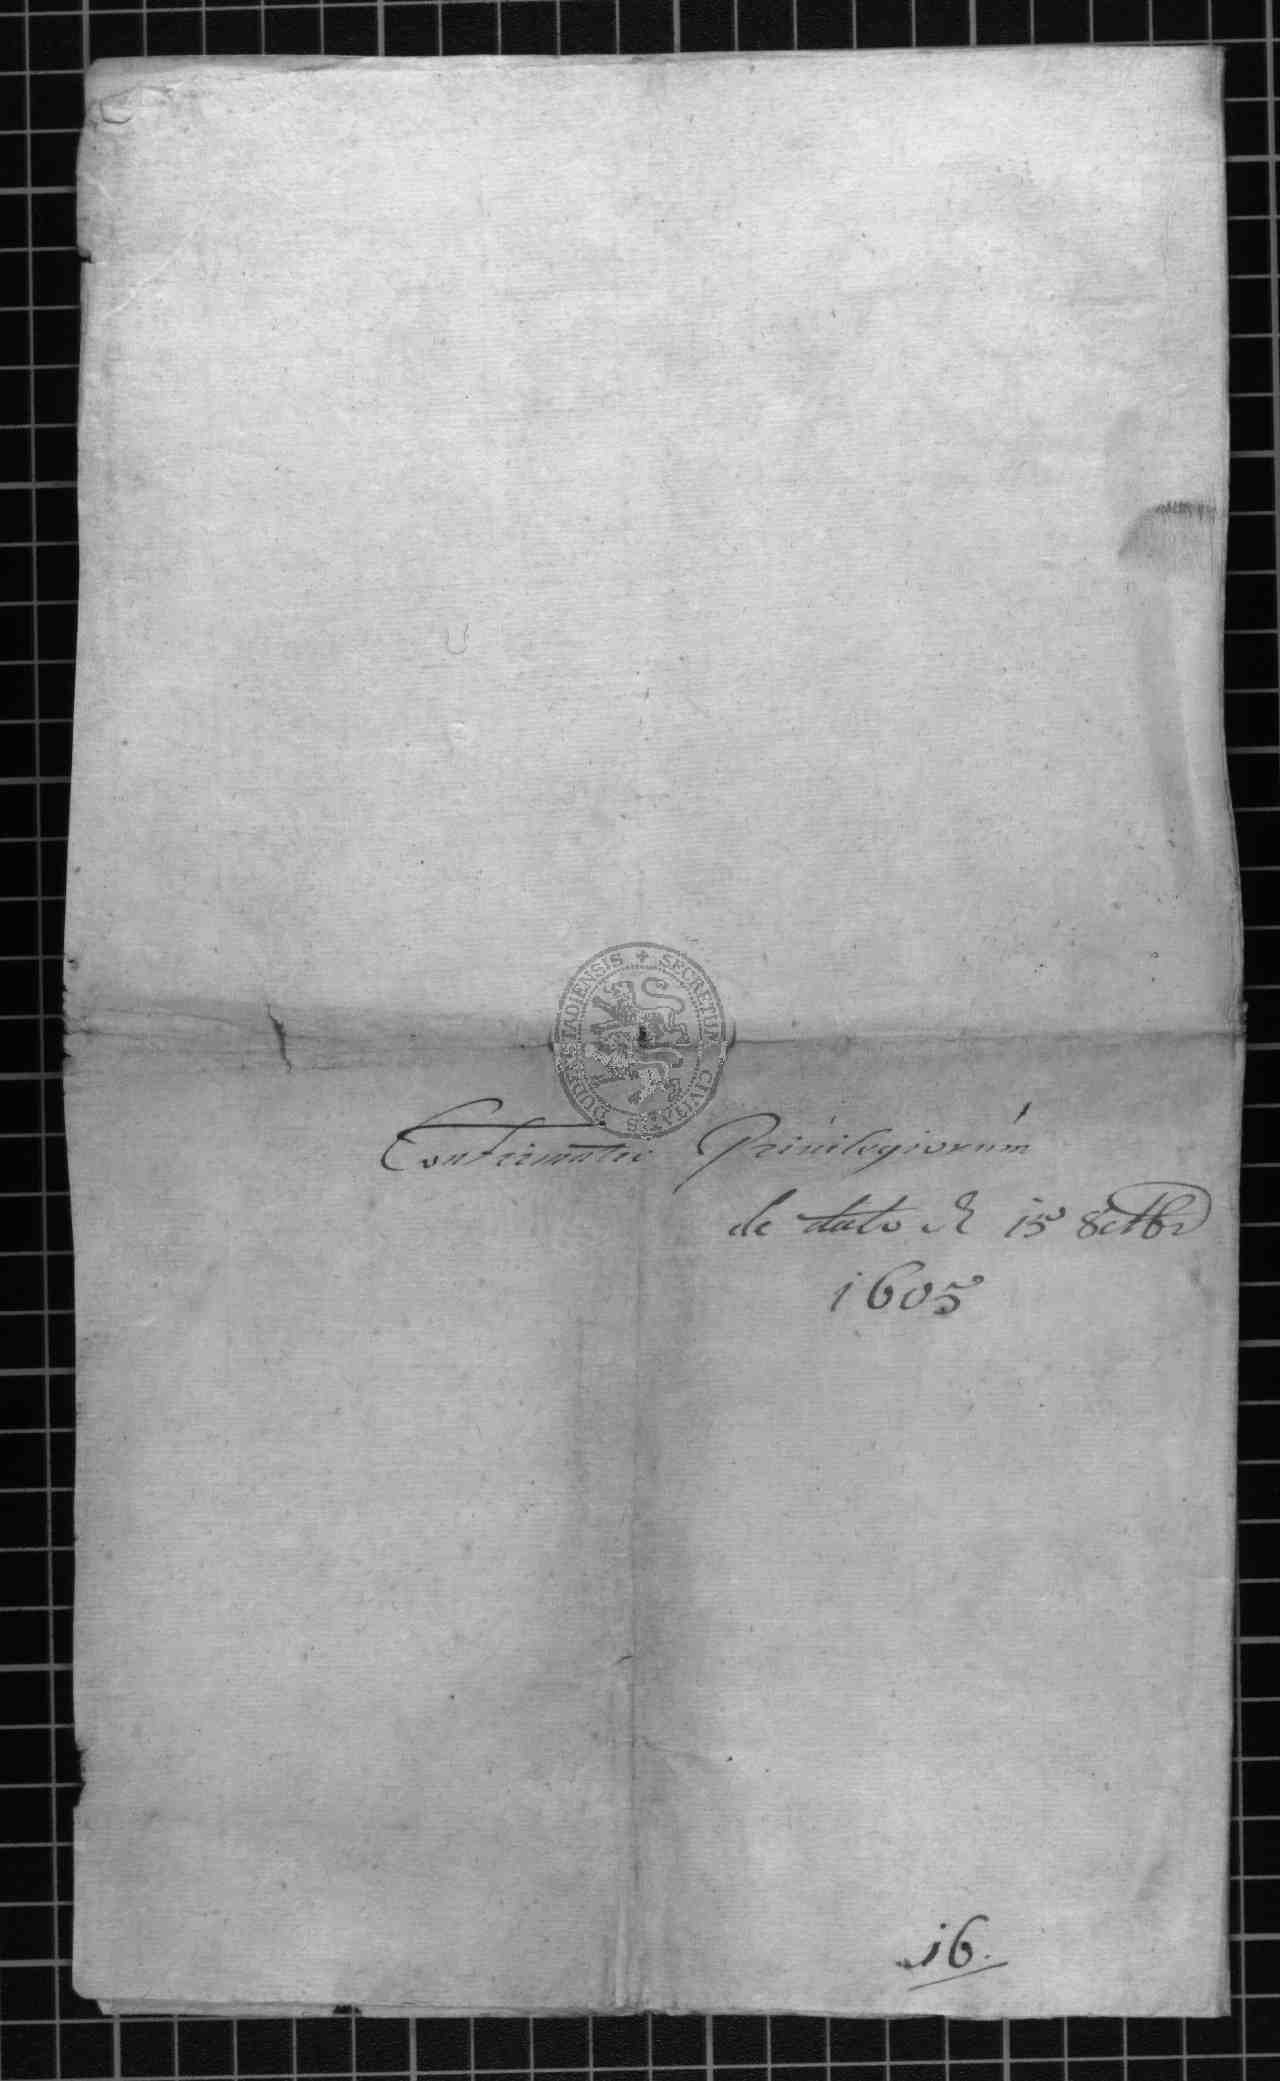 SECRETUM CIVITATIS DUDERSTADIENSIS
Confirmatio Privilegiorum
de dato 15 8ctbr
1605
16.